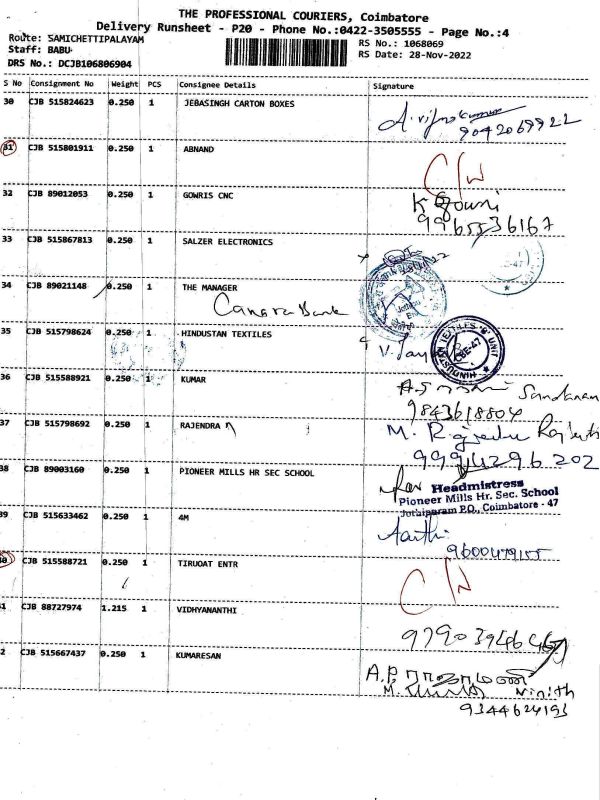 THE PROFESSIONAL COURIERS, Coimbatore
Delivery Runsheet - P20 - Phone No.:0422-3505555 - Page No.:4
Route: SAMICHETTIPALAYAM RS No.: 1068069
Staff: BABU RS Date: 28-Nov-2022
DRS No.: DCJB106806904
S No Consignment No Weight PCS Consignee Details Signature
30 CJB 515824623 0.250 1 JEBASINGH CARTON BOXES
9042069922
31 CJB 515801911 0.250 1 ABNAND
32 CJB 89012053 0.250 1 GOWRIS CNC K Gowri
9965536167
33 CJB 515867813 0.250 1 SALZER ELECTRONICS
34 CJB 89021148 0.250 1 THE MANAGER
Canara Bank
35 CJB 515798624 0.250 1 HINDUSTAN TEXTILES
HINDUSTAN TEXTILES 'B' UNIT CBE-47
36 CJB 515588921 0.250 1 KUMAR
9843618804
37 CJB 515798692 0.250 1 RAJENDRA n
38 CJB 89003160 0.250 1 PIONEER MILLS HR SEC SCHOOL
For Headmistress
Pioneer Mills Hr. Sec. School
Jothipuram P.O., Coimbatore - 47
39 CJB 515633462 0.250 1 4M
Aarthi
40 CJB 515588721 0.250 1 TIRUOAT ENTR
41 CJB 88727974 1.215 1 VIDHYANANTHI
42 CJB 515667437 0.250 1 KUMARESAN
9344624193